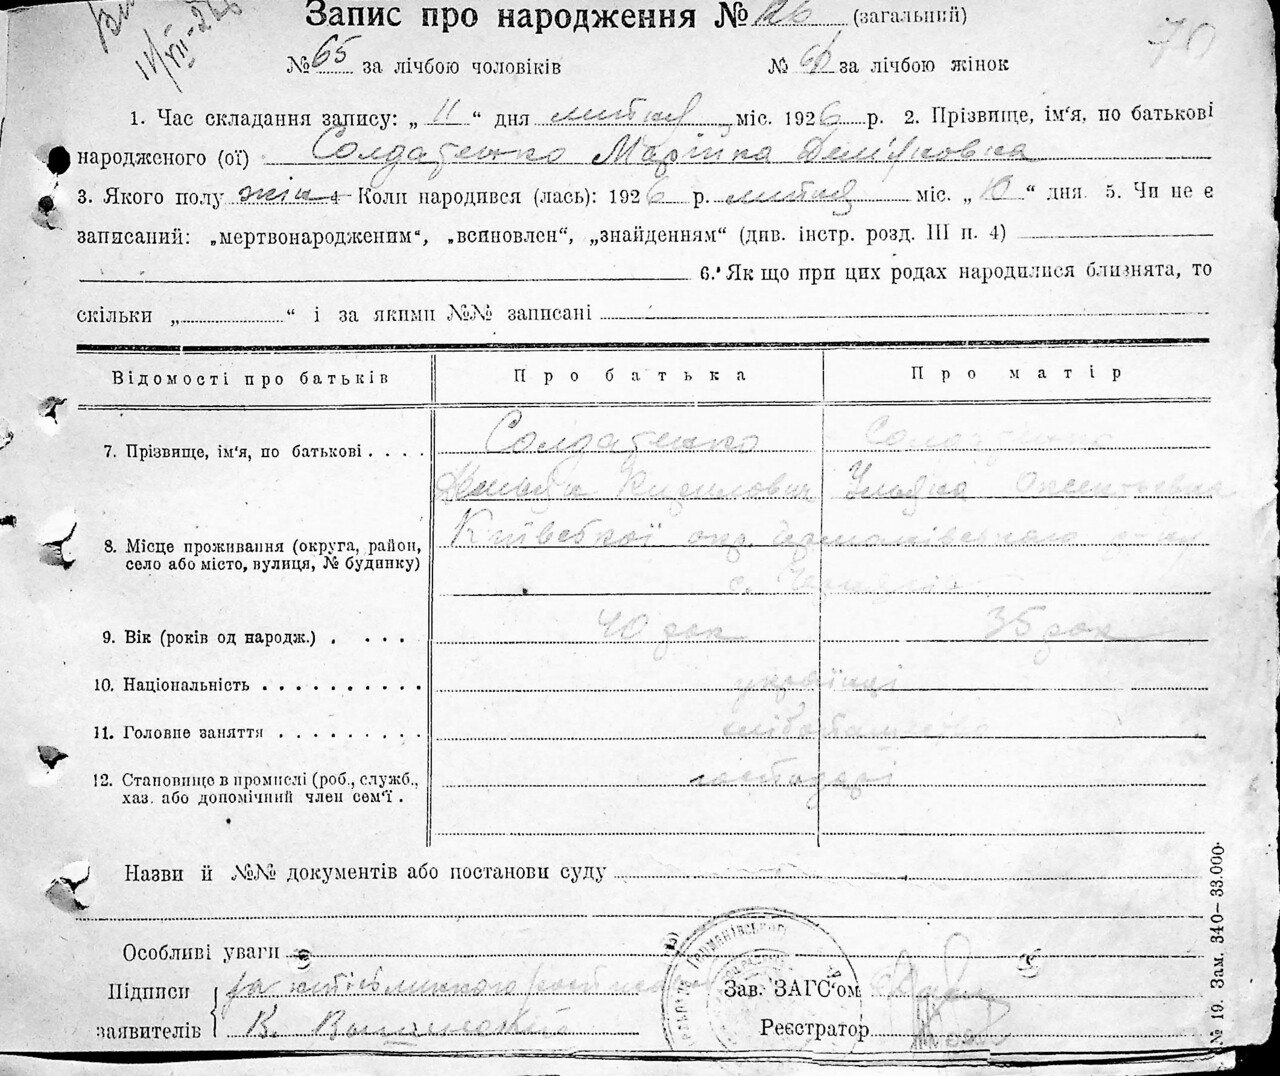 Запис про народження № 126 (загальний)
70
№ 65 за лічбою чоловіків № за лічбою жінок
1. Час складання запису: „ 11 “ дня лютня міс. 1926 р. 2. Прізвище, ім'я, по батькові
народженого (ої) Солдатенко Марійка Дем'яновна
3. Якого полу жін 4 Коли народився (лась): 1926 р. лютня міс. „ 10 “ дня. 5. Чи не є
записаний: „мертвонародженим“, „всиновлен“, „знайденням“ (див. інстр. розд. III п. 4)
6. Як що при цих родах народилися близнята, то
скільки „ “ і за якими №№ записані
Відомості про батьків Про батька Про матір
7. Прізвище, ім'я, по батькові . . . . Солдатенко Солдатенко
Демьян Кирилович Ульяна Оксентьевна
8. Місце проживання (округа, район, село або місто, вулиця, № будинку) Київської окр. Германівського р-ну
с.
9. Вік (років од народж.) . . . . 40 рок 35 рок
10. Національність . . . . . . . . . . українці
11. Головне заняття . . . . . . . . . хлібопашество
12. Становище в промислі (роб., служб., хаз. або допомічний член сем'ї . господарі
Назви й №№ документів або постанови суду
Особливі уваги
Підписи заявителів
Зав. ЗАГС'ом
Реєстратор
№ 19. Зам. 340–33.000